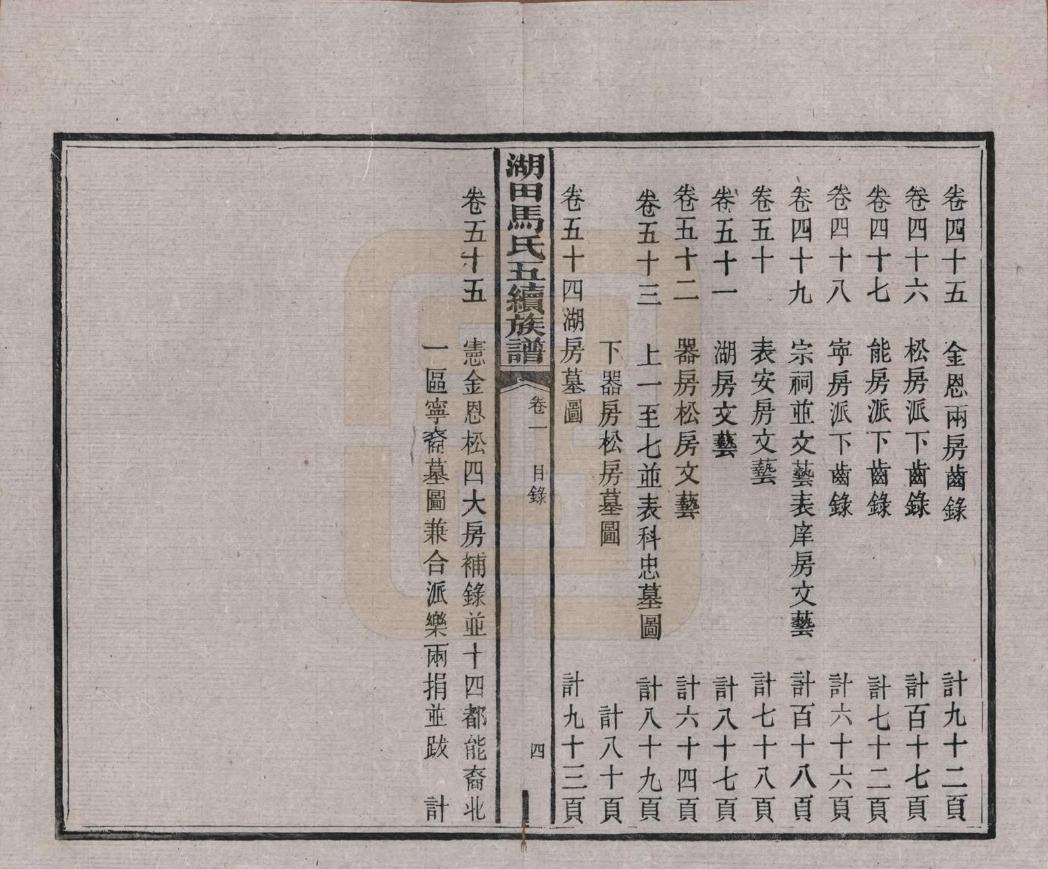 卷四十五 金恩兩房齒錄 計九十二頁
卷四十六 松房派下齒錄 計百十七頁
卷四十七 能房派下齒錄 計七十二頁
卷四十八 寧房派下齒錄 計六十六頁
卷四十九 宗祠並文藝表庠房文藝 計百十八頁
卷五十 表安房文藝 計七十八頁
卷五十一 湖房文藝 計八十七頁
卷五十二 器房松房文藝 計六十四頁
卷五十三 上一至七並表科忠墓圖 計八十九頁
下器房松房墓圖 計八十頁
卷五十四湖房墓圖 計九十三頁
湖田馬氏五續族譜 卷一 目錄 四
卷五十五 憲金恩松四大房補錄並十四都能裔北
一區寧裔墓圖兼合派樂兩捐並跋 計